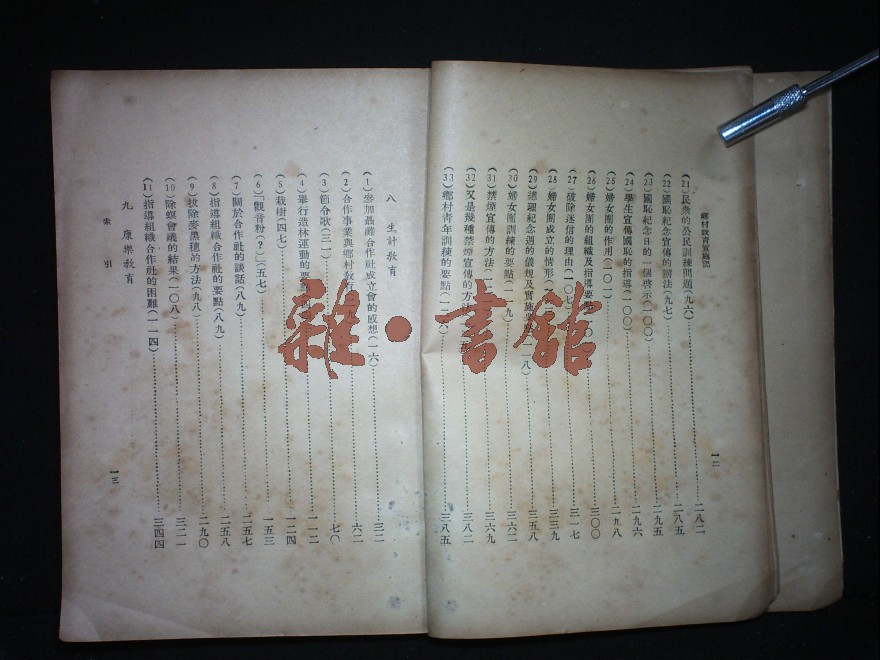 鄉村教育實施記
(21)民衆的公民訓練問題(九六)……二八二
(22)國恥紀念宣傳的辦法(九七)……二八五
(23)國恥紀念日的一個啓示(一〇〇)……二九五
(24)學生宣傳國恥的指導(一〇〇)……二九六
(25)婦女團的作用(一〇一)……二九八
(26)婦女團的組織及指導要……〇)……三〇〇
(27)破除迷信的理由(一〇七)……三一七
(28)婦女團成立的情形(……三三九
(29)總理紀念週的儀規及實施……一八)……三五八
(30)婦女團訓練的要點(一一九)……三六二
(31)禁煙宣傳的方法(一二……三六九
(32)又是幾種禁煙宣傳的方法……三八二
(33)鄉村青年訓練的要點(一二六)……三八五
一二
八 生計教育
(1)參加聶灘合作社成立會的感想(一六)……三二
(2)合作事業與鄉村教育……六二
(3)節令歌(三一)……七〇
(4)舉行造林運動的要……四……一一二
(5)栽樹(四七)……一二四
(6)「觀音粉(?)」(五七)……一五三
(7)關於合作社的談話(八九)……二五七
(8)指導組織合作社的要點(八九)……二五八
(9)拔除麥黑穗的方法(九八)……二九〇
(10)除螟會議的結果(一〇八)……三二一
(11)指導組織合作社的困難(一一四)……三四四
九 康樂教育
索引
一三
雜·書館